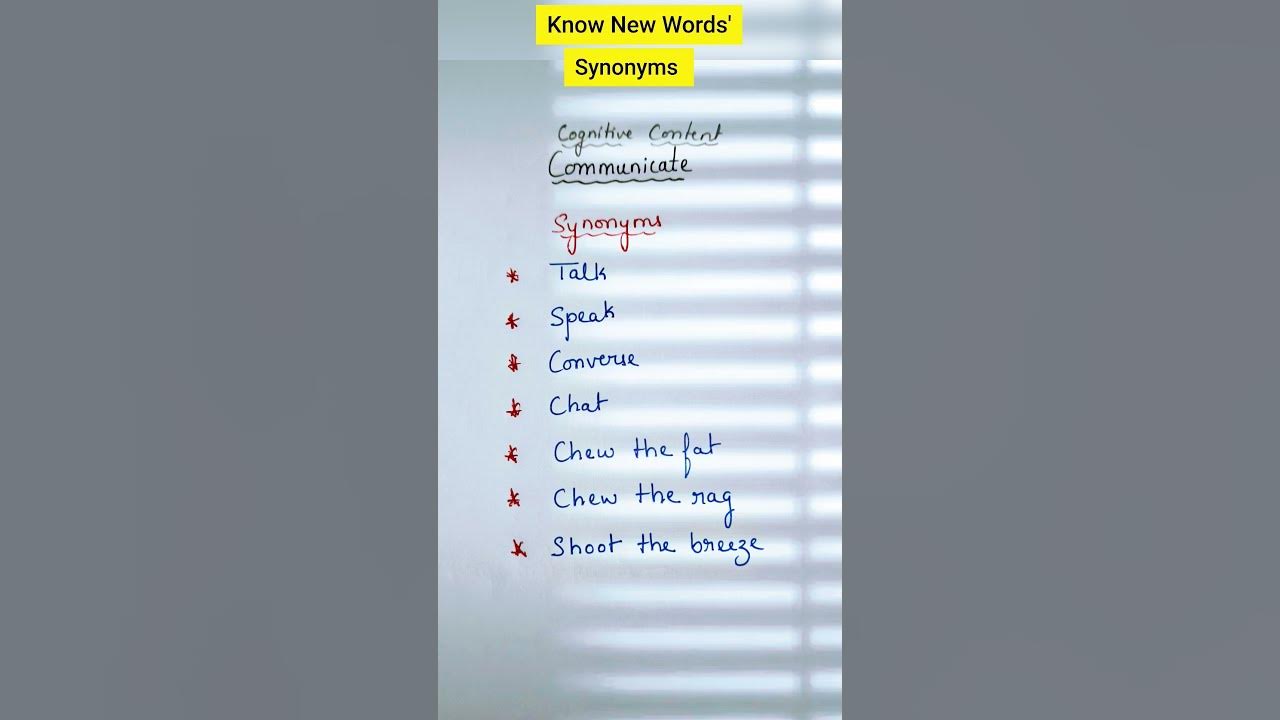 Know New Words'
Synonyms
Cognitive Content
Communicate
Synonyms
* Talk
* Speak
* Converse
* Chat
* Chew the fat
* Chew the rag
* Shoot the breeze